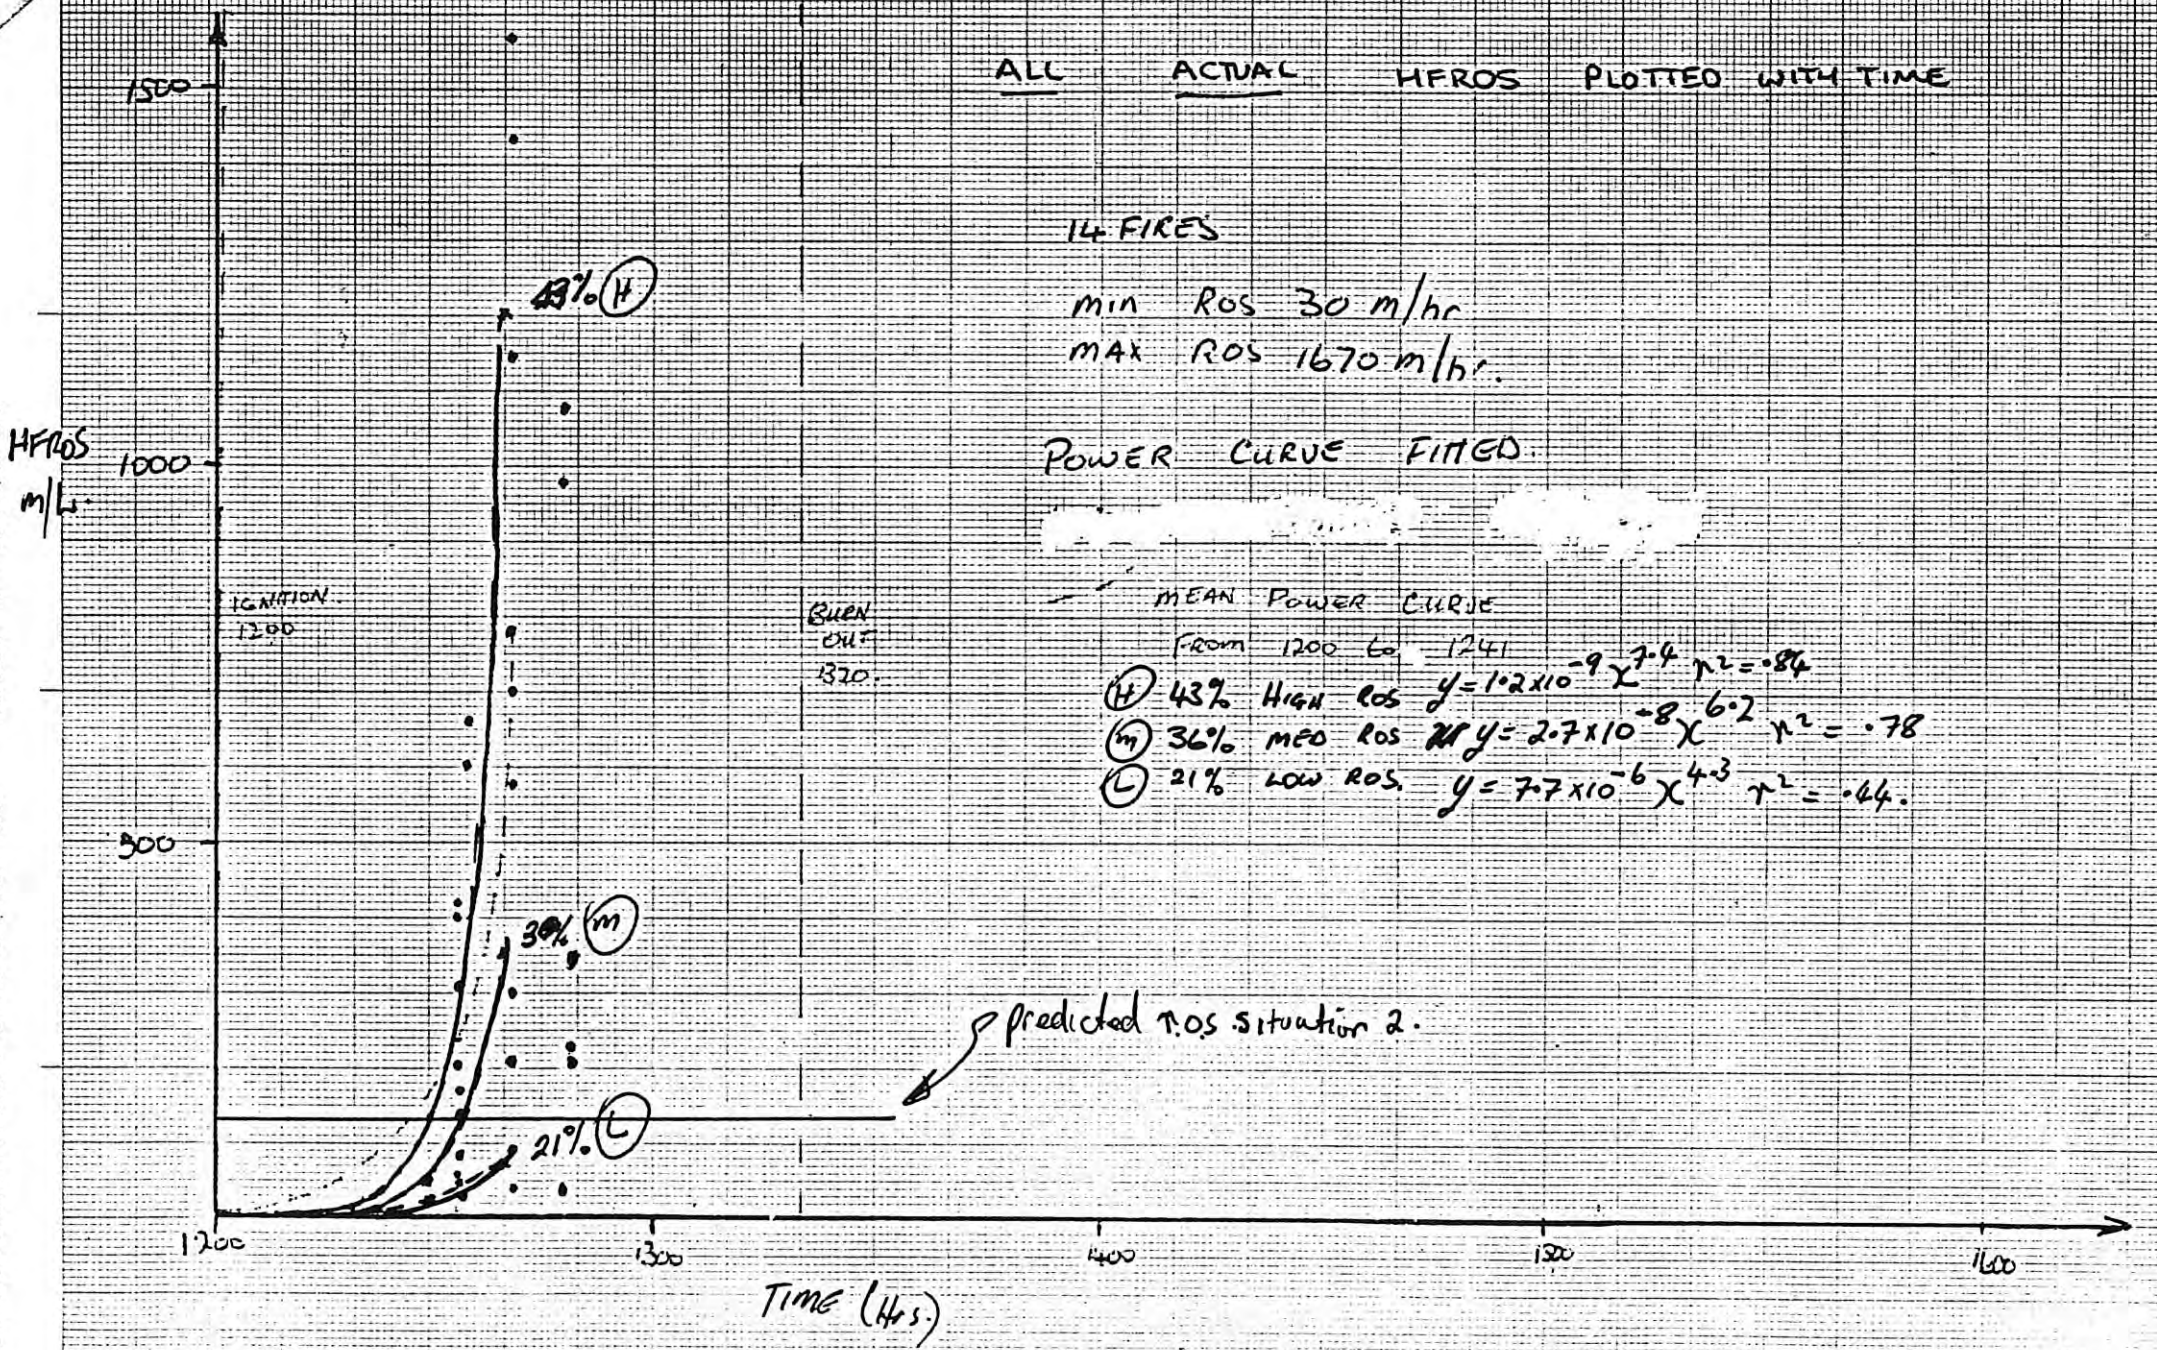 ALL ACTUAL HFROS PLOTTED WITH TIME
1500
14 FIRES
43% H
min ROS 30 m/hr
MAX ROS 1670 m/hr.
HFROS
m/h.
1000
POWER CURVE FITTED.
IGNITION.
1200
BURN
OUT
1320.
MEAN POWER CURVE
FROM 1200 to 1241
H 43% HIGH ROS y=1.2x10⁻⁹x⁷·⁴ r²=.84
m 36% MED ROS y=2.7x10⁻⁸x⁶·² r²=.78
L 21% LOW ROS. y=7.7x10⁻⁶x⁴·³ r²=.44.
500
36% m
predicted r.o.s situation 2.
21% L
1200
1300
1400
1500
1600
TIME (Hrs.)